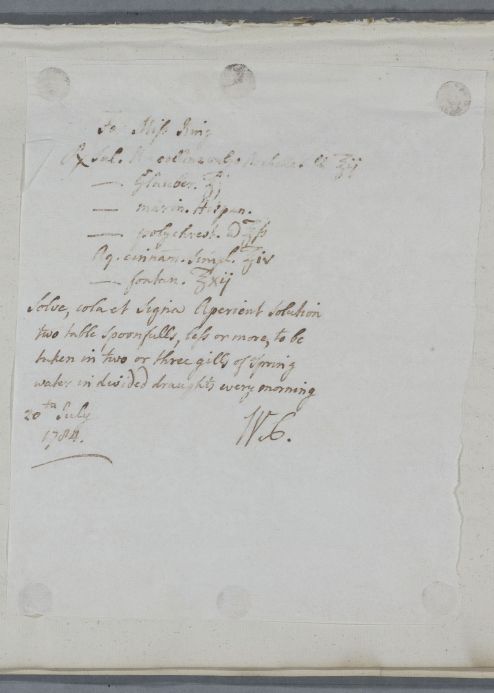 For Miss King
℞ Sal. Rochel. ℥ij
— Glauber. ℥j
— marin. Hispan.
— polychrest. a ℥ſs
Aq. cinnam. simpl. ℥iv
— fontan. ℥xij
Solve, cola et Signa Aperient Solution
two table spoonfulls, less or more, to be
taken in two or three gills of Spring
water in divided draughts every morning
20th July
1784.
W.C.